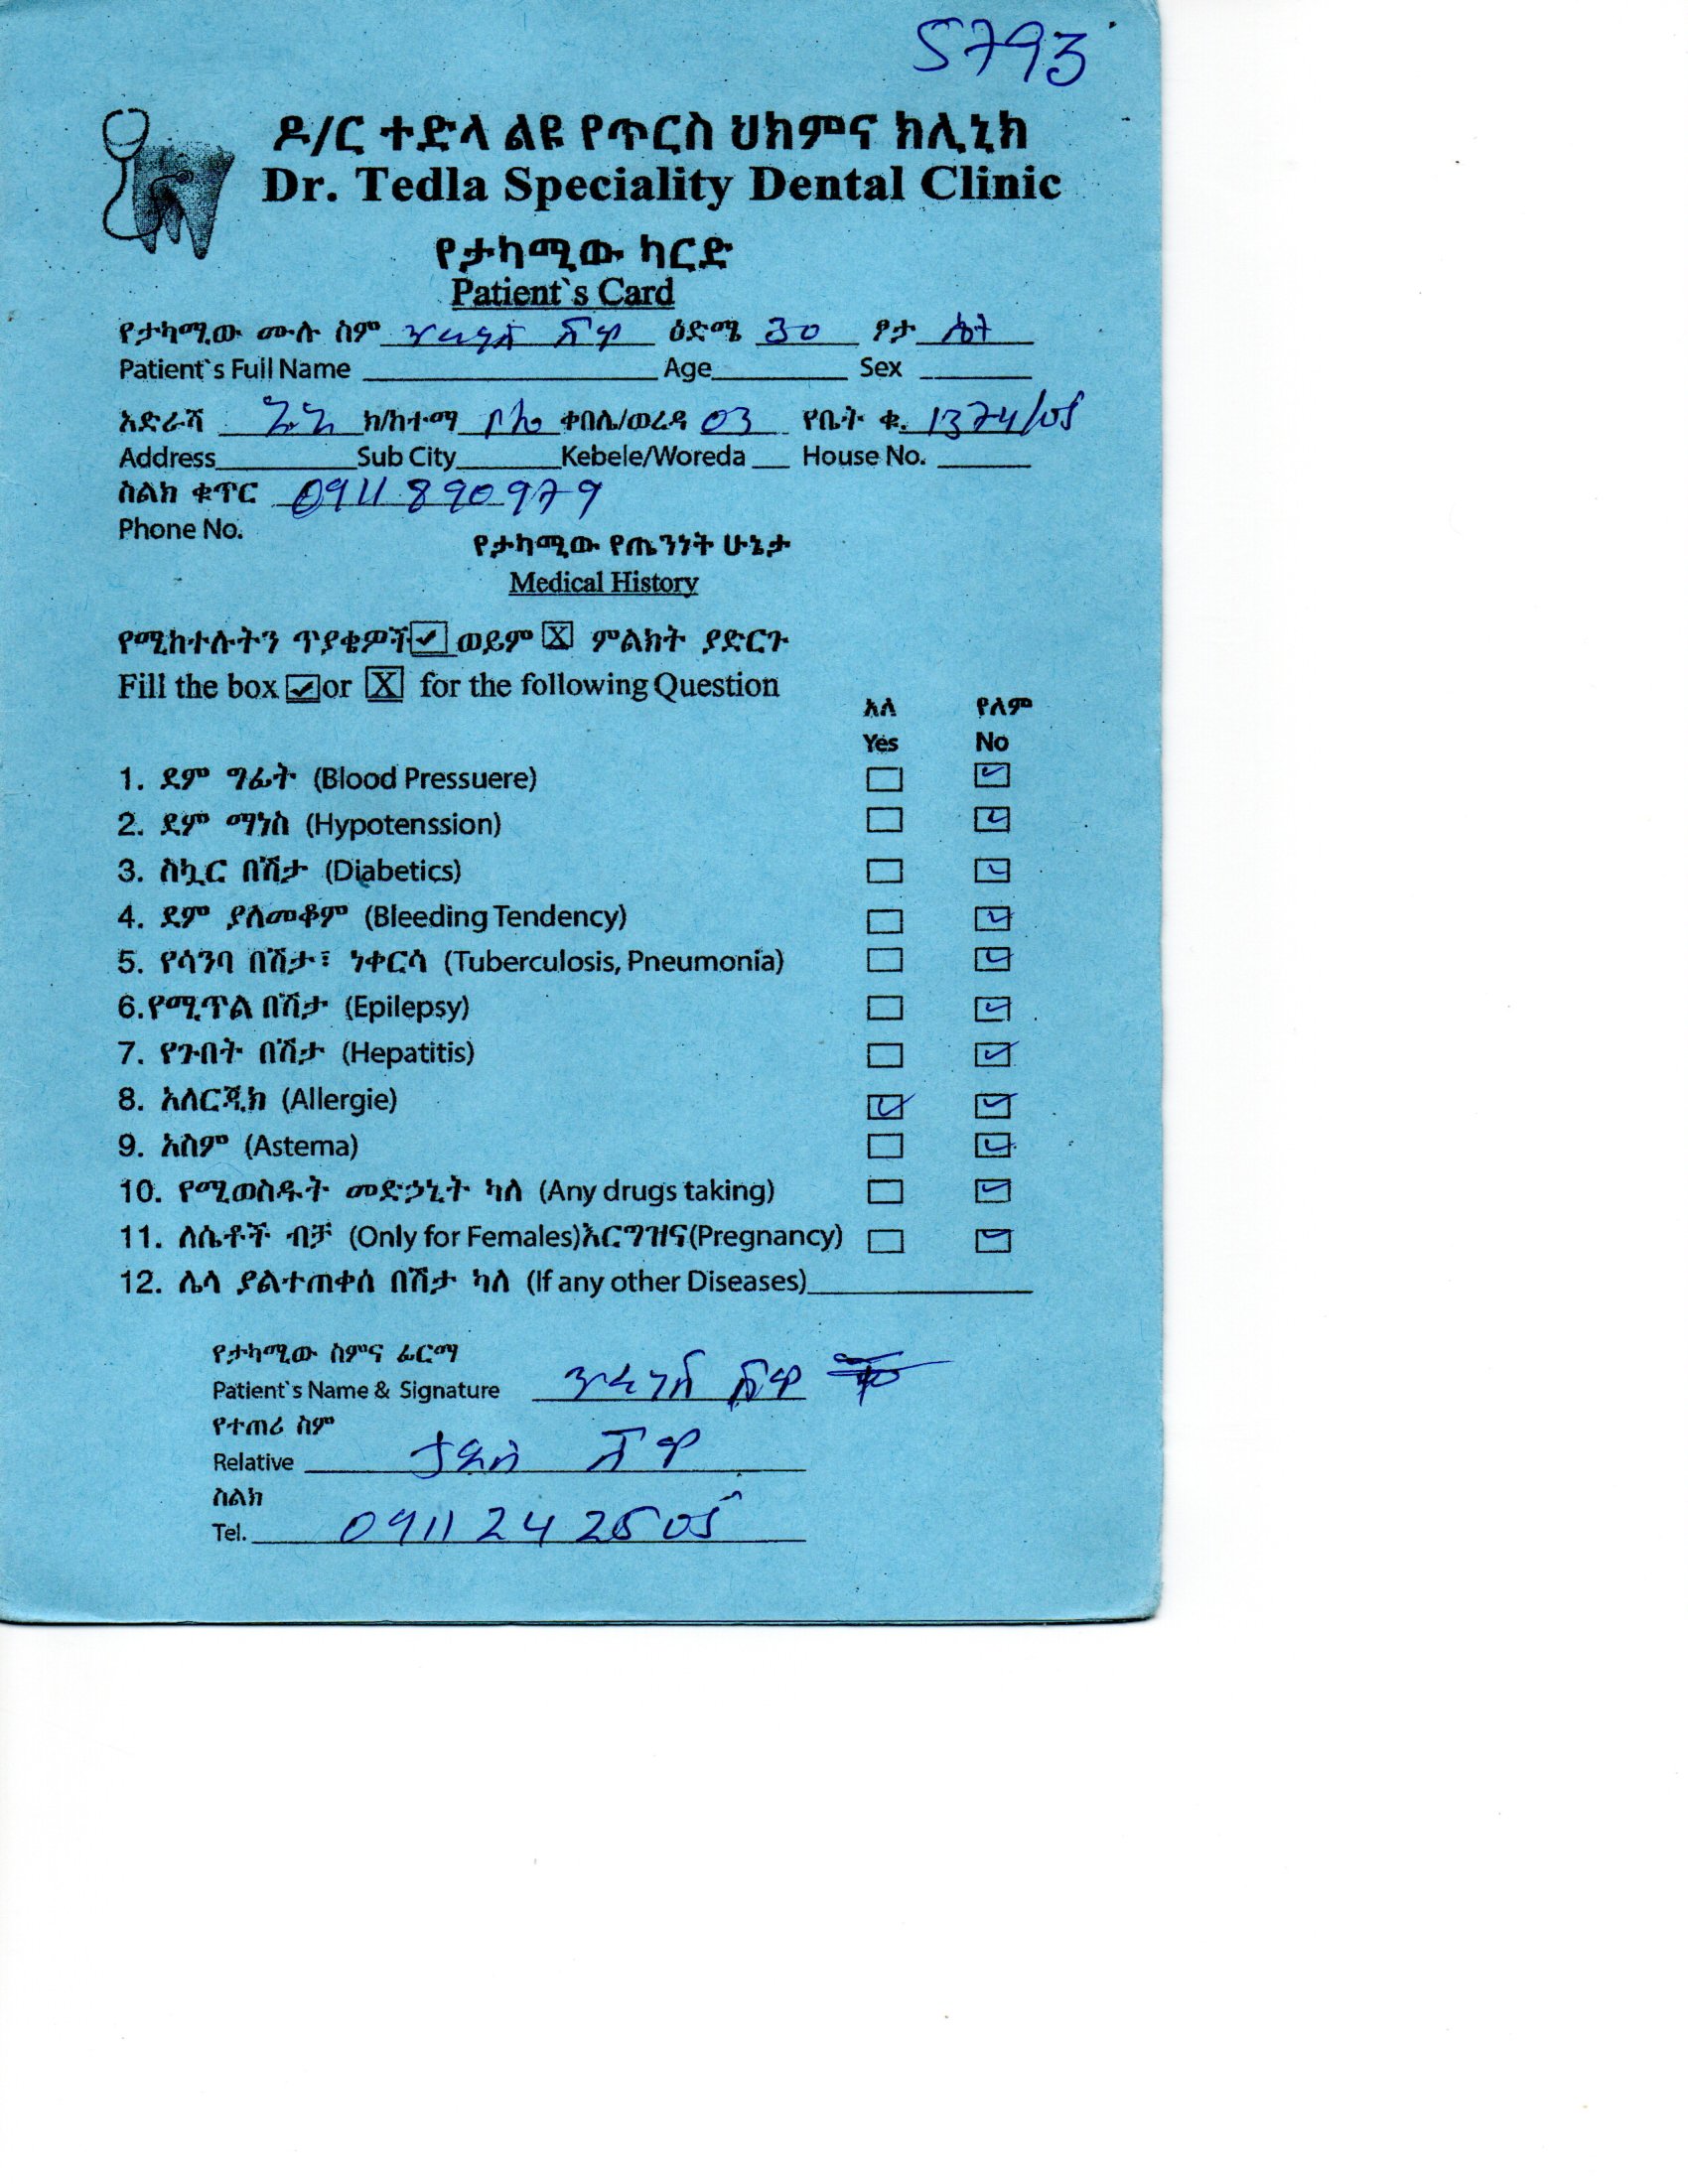 5793
ዶ/ር ተድላ ልዩ የጥርስ ህክምና ክሊኒክ
Dr. Tedla Speciality Dental Clinic
የታካሚው ካርድ
Patient`s Card
የታካሚው ሙሉ ስም ዕድሜ 30 ፆታ ሴት
Patient`s Full Name Age Sex
አድራሻ ክ/ከተማ ቦሌ ቀበሌ/ወረዳ 03 የቤት ቁ. 1374/05
Address Sub City Kebele/Woreda House No.
ስልክ ቁጥር 0911890979
Phone No.
የታካሚው የጤንነት ሁኔታ
Medical History
የሚከተሉትን ጥያቄዎች ✓ ወይም X ምልክት ያድርጉ
Fill the box ✓ or X for the following Question
አለ የለም
Yes No
1. ደም ግፊት (Blood Pressuere) ✓
2. ደም ማነስ (Hypotenssion) ✓
3. ስኳር በሽታ (Diabetics) ✓
4. ደም ያለመቆም (Bleeding Tendency) ✓
5. የሳንባ በሽታ፣ ነቀርሳ (Tuberculosis, Pneumonia) ✓
6.የሚጥል በሽታ (Epilepsy) ✓
7. የጉበት በሽታ (Hepatitis) ✓
8. አለርጂክ (Allergie) ✓ ✓
9. አስም (Astema) ✓
10. የሚወስዱት መድኃኒት ካለ (Any drugs taking) ✓
11. ለሴቶች ብቻ (Only for Females)እርግዝና(Pregnancy) ✓
12. ሌላ ያልተጠቀሰ በሽታ ካለ (If any other Diseases)
የታካሚው ስምና ፊርማ
Patient`s Name & Signature
የተጠሪ ስም
Relative ታደሰ
ስልክ
Tel. 0911242505